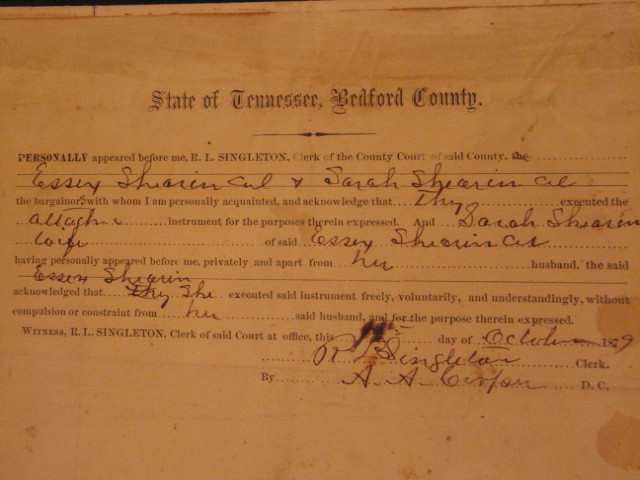 State of Tennessee, Bedford County.
PERSONALLY appeared before me, R. L. SINGLETON, Clerk of the County Court of said County, the
Essex Shearin Col & Sarah Shearin Col
the bargainors, with whom I am personally acquainted, and acknowledge that they executed the
attached instrument for the purposes therein expressed. And Sarah Shearin
wife of said Essex Shearin Col
having personally appeared before me, privately and apart from her husband, the said
Essex Shearin
acknowledged that they She executed said instrument freely, voluntarily, and understandingly, without
compulsion or constraint from her said husband, and for the purpose therein expressed.
WITNESS, R. L. SINGLETON, Clerk of said Court at office, this day of October 1879
R L Singleton Clerk.
By A. A. D. C.